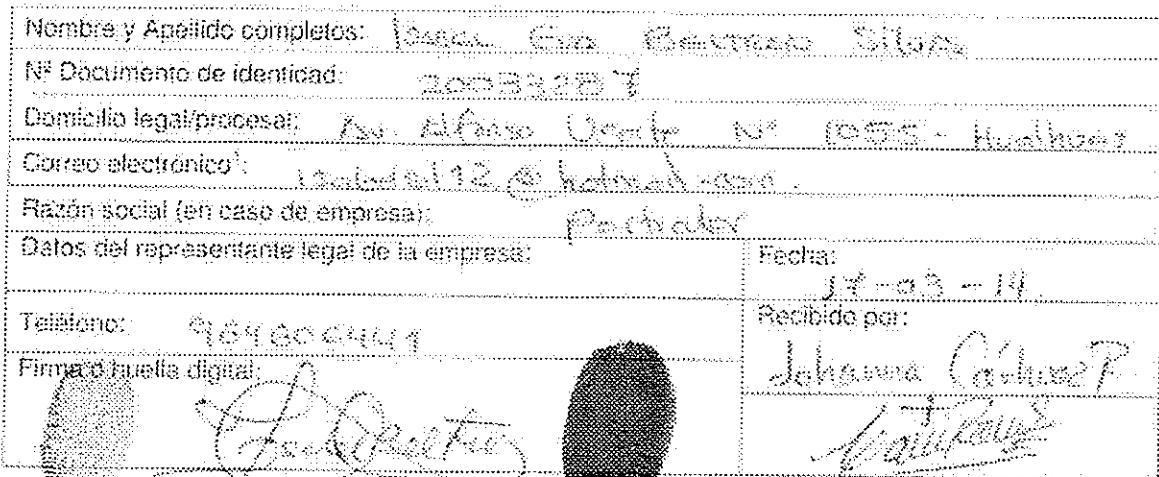 Nombre y Apellido completos: Eva Silva
Nº Documento de identidad: 20033287
Domicilio legal/procesal: Av. Alfonso Ugarte Nº 1055 - Hualhuas
Correo electrónico¹: @ hotmail.com.
Razón social (en caso de empresa):
Datos del representante legal de la empresa:
Fecha:
17-03-14
Teléfono: 964806441
Recibido por:
Johanna
Firma o huella digital: